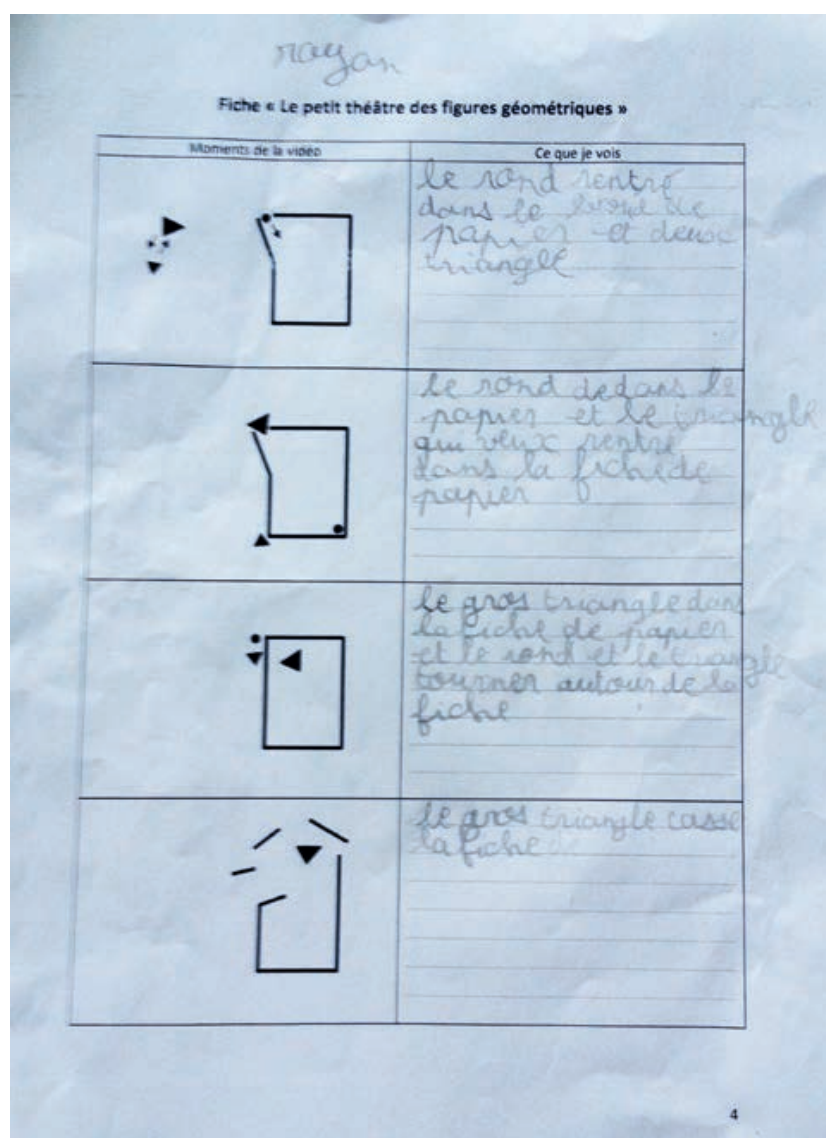 rayan
Fiche « Le petit théâtre des figures géométriques »
Moments de la vidéo
Ce que je vois
le rond rentre
dans le de
papier et deux
triangle
le rond dedans le
papier et le triangle
qui veux rentre
dans la fiche de
papier
le gros triangle dans
la fiche de papier
et le rond et le triangle
tourner autour de la
fiche
le gros triangle casse
la fiche de
4